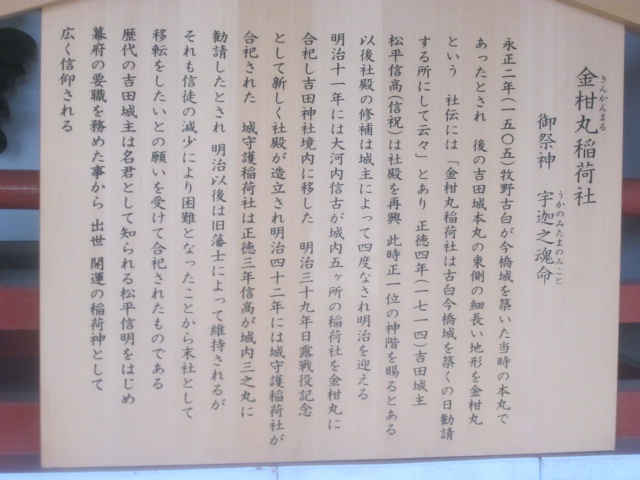 金柑丸稲荷社
きんかんまる
御祭神　宇迦之魂命
うかのみたまのみこと
永正二年(一五〇五)牧野古白が今橋城を築いた当時の本丸で
あったとされ　後の吉田城本丸の東側の細長い地形を金柑丸
という　社伝には「金柑丸稲荷社は古白今橋城を築くの日勧請
する所にして云々」とあり　正徳四年(一七一四)吉田城主
松平信高(信祝)は社殿を再興　此時正一位の神階を賜るとある
以後社殿の修補は城主によって四度なされ明治を迎える
明治十一年には大河内信古が城内五ヶ所の稲荷社を金柑丸に
合祀し吉田神社境内に移した　明治三十九年日露戦役記念
として新しく社殿が造立され明治四十二年には城守護稲荷社が
合祀された　城守護稲荷社は正徳三年信高が城内三之丸に
勧請したとされ　明治以後は旧藩士によって維持されるが
それも信徒の減少により困難となったことから末社として
移転をしたいとの願いを受けて合祀されたものである
歴代の吉田城主は名君として知られる松平信明をはじめ
幕府の要職を務めた事から　出世　開運の稲荷神として
広く信仰される